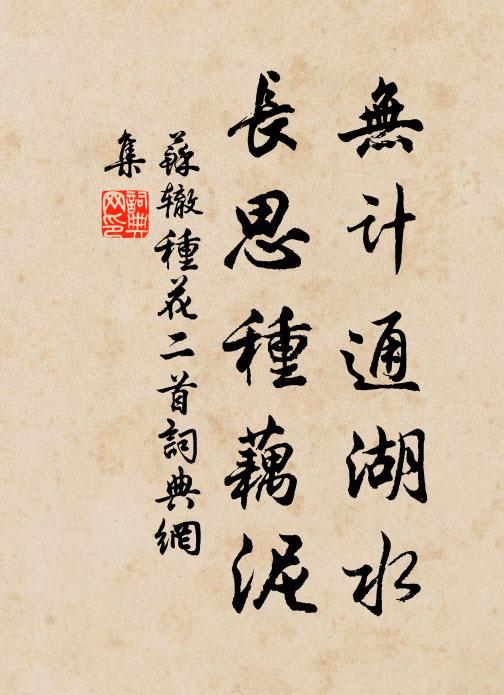 無计通湖水
長思種藕泥
蘇辙種花二首詞典網
集
詞典
网印